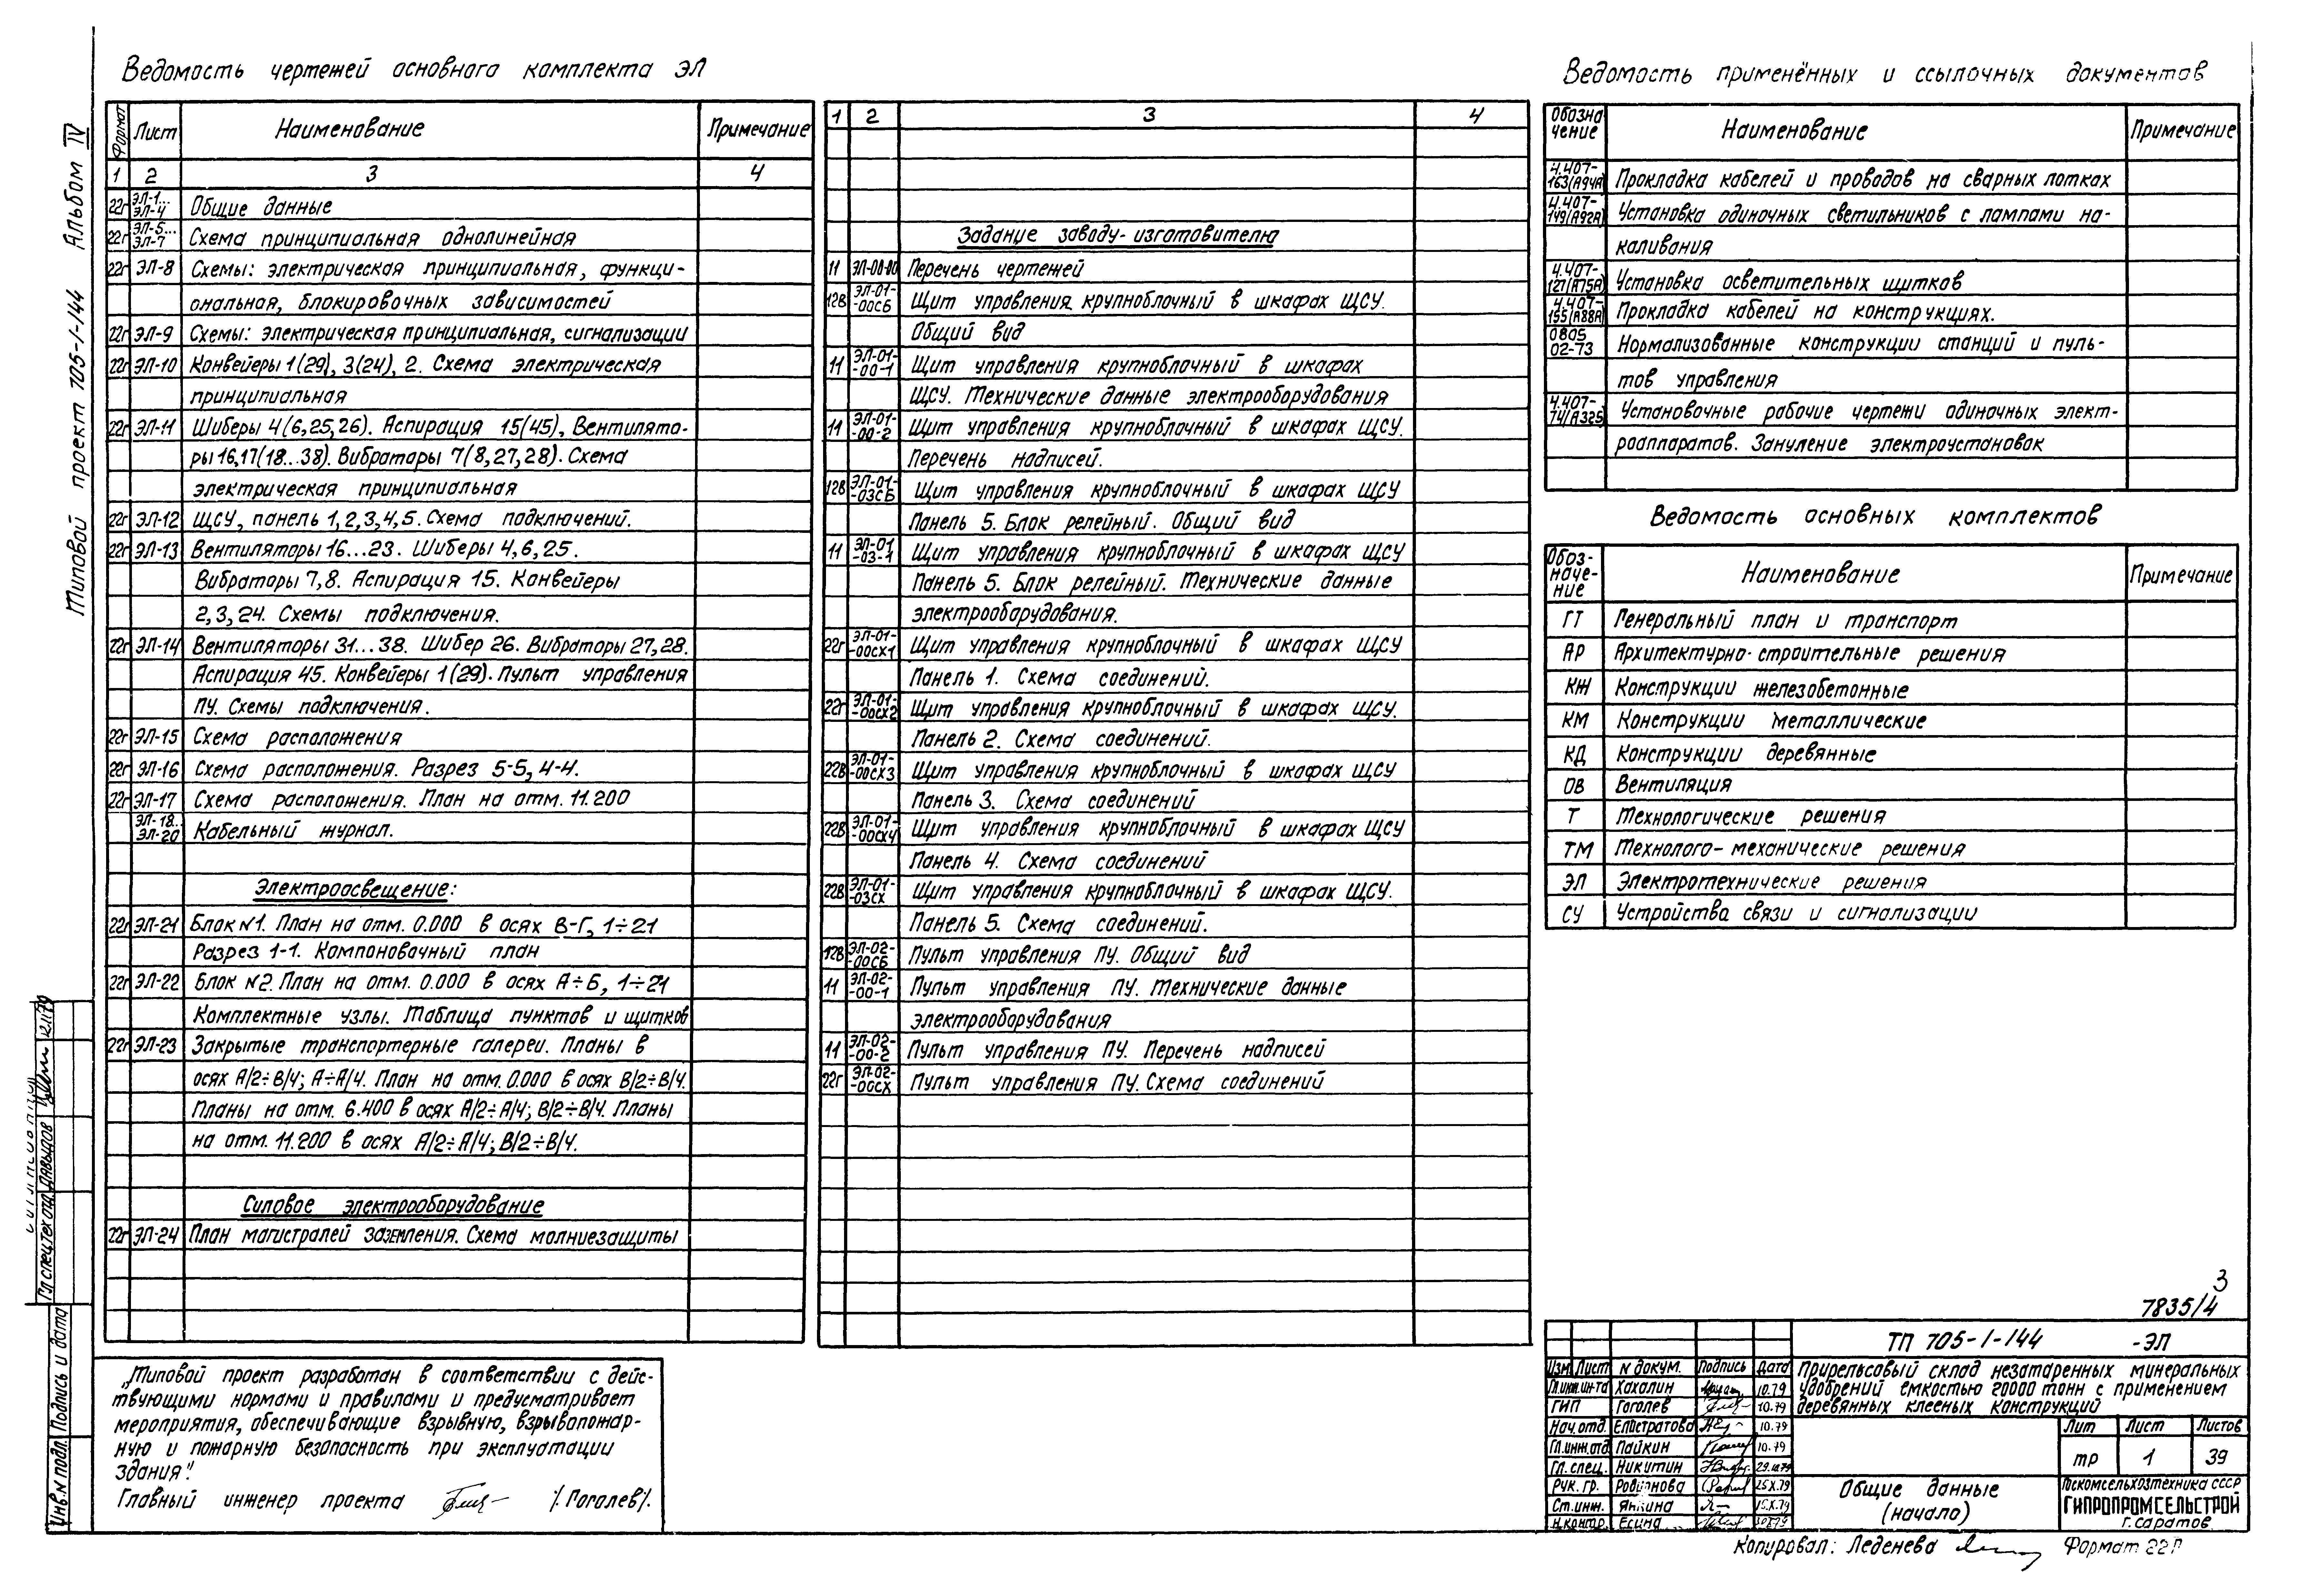 Ведомость чертежей основного комплекта ЭЛ
Формат Лист Наименование Примечание
1 2 3 4
22г ЭЛ-1... ЭЛ-4 Общие данные
22г ЭЛ-5... ЭЛ-7 Схема принципиальная однолинейная
22г ЭЛ-8 Схемы: электрическая принципиальная, функци-
ональная, блокировочных зависимостей
22г ЭЛ-9 Схемы: электрическая принципиальная, сигнализации
22г ЭЛ-10 Конвейеры 1(29), 3(24), 2. Схема электрическая
принципиальная
22г ЭЛ-11 Шиберы 4(6,25,26). Аспирация 15(45), Вентилято-
ры 16,17(18...38). Вибраторы 7(8,27,28). Схема
электрическая принципиальная
22г ЭЛ-12 ЩСУ, панель 1,2,3,4,5. Схема подключений.
22г ЭЛ-13 Вентиляторы 16...23. Шиберы 4,6,25.
Вибраторы 7,8. Аспирация 15. Конвейеры
2,3,24. Схемы подключения.
22г ЭЛ-14 Вентиляторы 31...38. Шибер 26. Вибраторы 27,28.
Аспирация 45. Конвейеры 1(29). Пульт управления
ПУ. Схемы подключения.
22г ЭЛ-15 Схема расположения
22г ЭЛ-16 Схема расположения. Разрез 5-5, 4-4.
22г ЭЛ-17 Схема расположения. План на отм. 11.200
ЭЛ-18... ЭЛ-20 Кабельный журнал.
Электроосвещение:
22г ЭЛ-21 Блок №1. План на отм. 0.000 в осях В-Г, 1÷21
Разрез 1-1. Компоновочный план
22г ЭЛ-22 Блок №2. План на отм. 0.000 в осях А÷Б, 1÷21
Комплектные узлы. Таблица пунктов и щитков
22г ЭЛ-23 Закрытые транспортерные галереи. Планы в
осях А/2÷В/4; А÷А/4. План на отм. 0.000 в осях В/2÷В/4.
Планы на отм. 6.400 в осях А/2÷А/4; В/2÷В/4. Планы
на отм. 11.200 в осях А/2÷А/4; В/2÷В/4.
Силовое электрооборудование
22г ЭЛ-24 План магистралей заземления. Схема молниезащиты
1 2 3 4
Задание заводу-изготовителю
11 ЭЛ-00-00 Перечень чертежей
12В ЭЛ-01--00СБ Щит управления крупноблочный в шкафах ЩСУ.
Общий вид
11 ЭЛ-01--00-1 Щит управления крупноблочный в шкафах
ЩСУ. Технические данные электрооборудования
11 ЭЛ-01--00-2 Щит управления крупноблочный в шкафах ЩСУ.
Перечень надписей.
12В ЭЛ-01--03СБ Щит управления крупноблочный в шкафах ЩСУ
Панель 5. Блок релейный. Общий вид
11 ЭЛ-01 -03-1 Щит управления крупноблочный в шкафах ЩСУ
Панель 5. Блок релейный. Технические данные
электрооборудования.
22г ЭЛ-01--00СХ1 Щит управления крупноблочный в шкафах ЩСУ
Панель 1. Схема соединений.
22г ЭЛ-01--00СХ2 Щит управления крупноблочный в шкафах ЩСУ.
Панель 2. Схема соединений.
22В ЭЛ-01--00СХ3 Щит управления крупноблочный в шкафах ЩСУ
Панель 3. Схема соединений
22В ЭЛ-01--00СХ4 Щит управления крупноблочный в шкафах ЩСУ
Панель 4. Схема соединений
22В ЭЛ-01--03СХ Щит управления крупноблочный в шкафах ЩСУ.
Панель 5. Схема соединений.
12В ЭЛ-02--00СБ Пульт управления ПУ. Общий вид
11 ЭЛ-02--00-1 Пульт управления ПУ. Технические данные
электрооборудования
11 ЭЛ-02--00-2 Пульт управления ПУ. Перечень надписей
22г ЭЛ-02--00СХ Пульт управления ПУ. Схема соединений
Ведомость применённых и ссылочных документов
Обозначение Наименование Примечание
4.407-163(А94А) Прокладка кабелей и проводов на сварных лотках
4.407-149(А92А) Установка одиночных светильников с лампами на-
каливания
4.407-127(А75А) Установка осветительных щитков
4.407-155(А88А) Прокладка кабелей на конструкциях.
0805 02-73 Нормализованные конструкции станций и пуль-
тов управления
4.407-74(А325) Установочные рабочие чертежи одиночных элект-
роаппаратов. Зануление электроустановок
Ведомость основных комплектов
Обоз-наче-ние Наименование Примечание
ГТ Генеральный план и транспорт
АР Архитектурно-строительные решения
КЖ Конструкции железобетонные
КМ Конструкции металлические
КД Конструкции деревянные
ОВ Вентиляция
Т Технологические решения
ТМ Технолого-механические решения
ЭЛ Электротехнические решения
СУ Устройства связи и сигнализации
„Типовой проект разработан в соответствии с дейс-
твующими нормами и правилами и предусматривает
мероприятия, обеспечивающие взрывную, взрывопожар-
ную и пожарную безопасность при эксплуатации
здания".
Главный инженер проекта /Гоголев/.
3
7835/4
ТП 705-1-144 -ЭЛ
Прирельсовый склад незатаренных минеральных
удобрений емкостью 20000 тонн с применением
деревянных клееных конструкций
Изм Лист № докум. Подпись Дата
Гл.инж.ин-та Хахалин 10.79
ГИП Гоголев 10.79
Нач.отд. Елистратова 10.79
Гл.инж.отд Пайкин 10.79
Гл.спец. Никитин
Рук. гр. Родионова 25.X.79
Ст.инж. Янкина
Н.контр. Есина
Лит Лист Листов
тр 1 39
Общие данные
(начало)
Госкомсельхозтехника СССР
ГИПРОПРОМСЕЛЬСТРОЙ
г. Саратов
Копировал: Леденева
Формат 22г
Типовой проект 705-1-144 Альбом IV
Гл спец.тех отд Давыдов
Инв. № подл. Подпись и дата